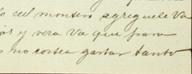 cual montivo agreguele Va
y vera Va que para
no cortea gastar tanto